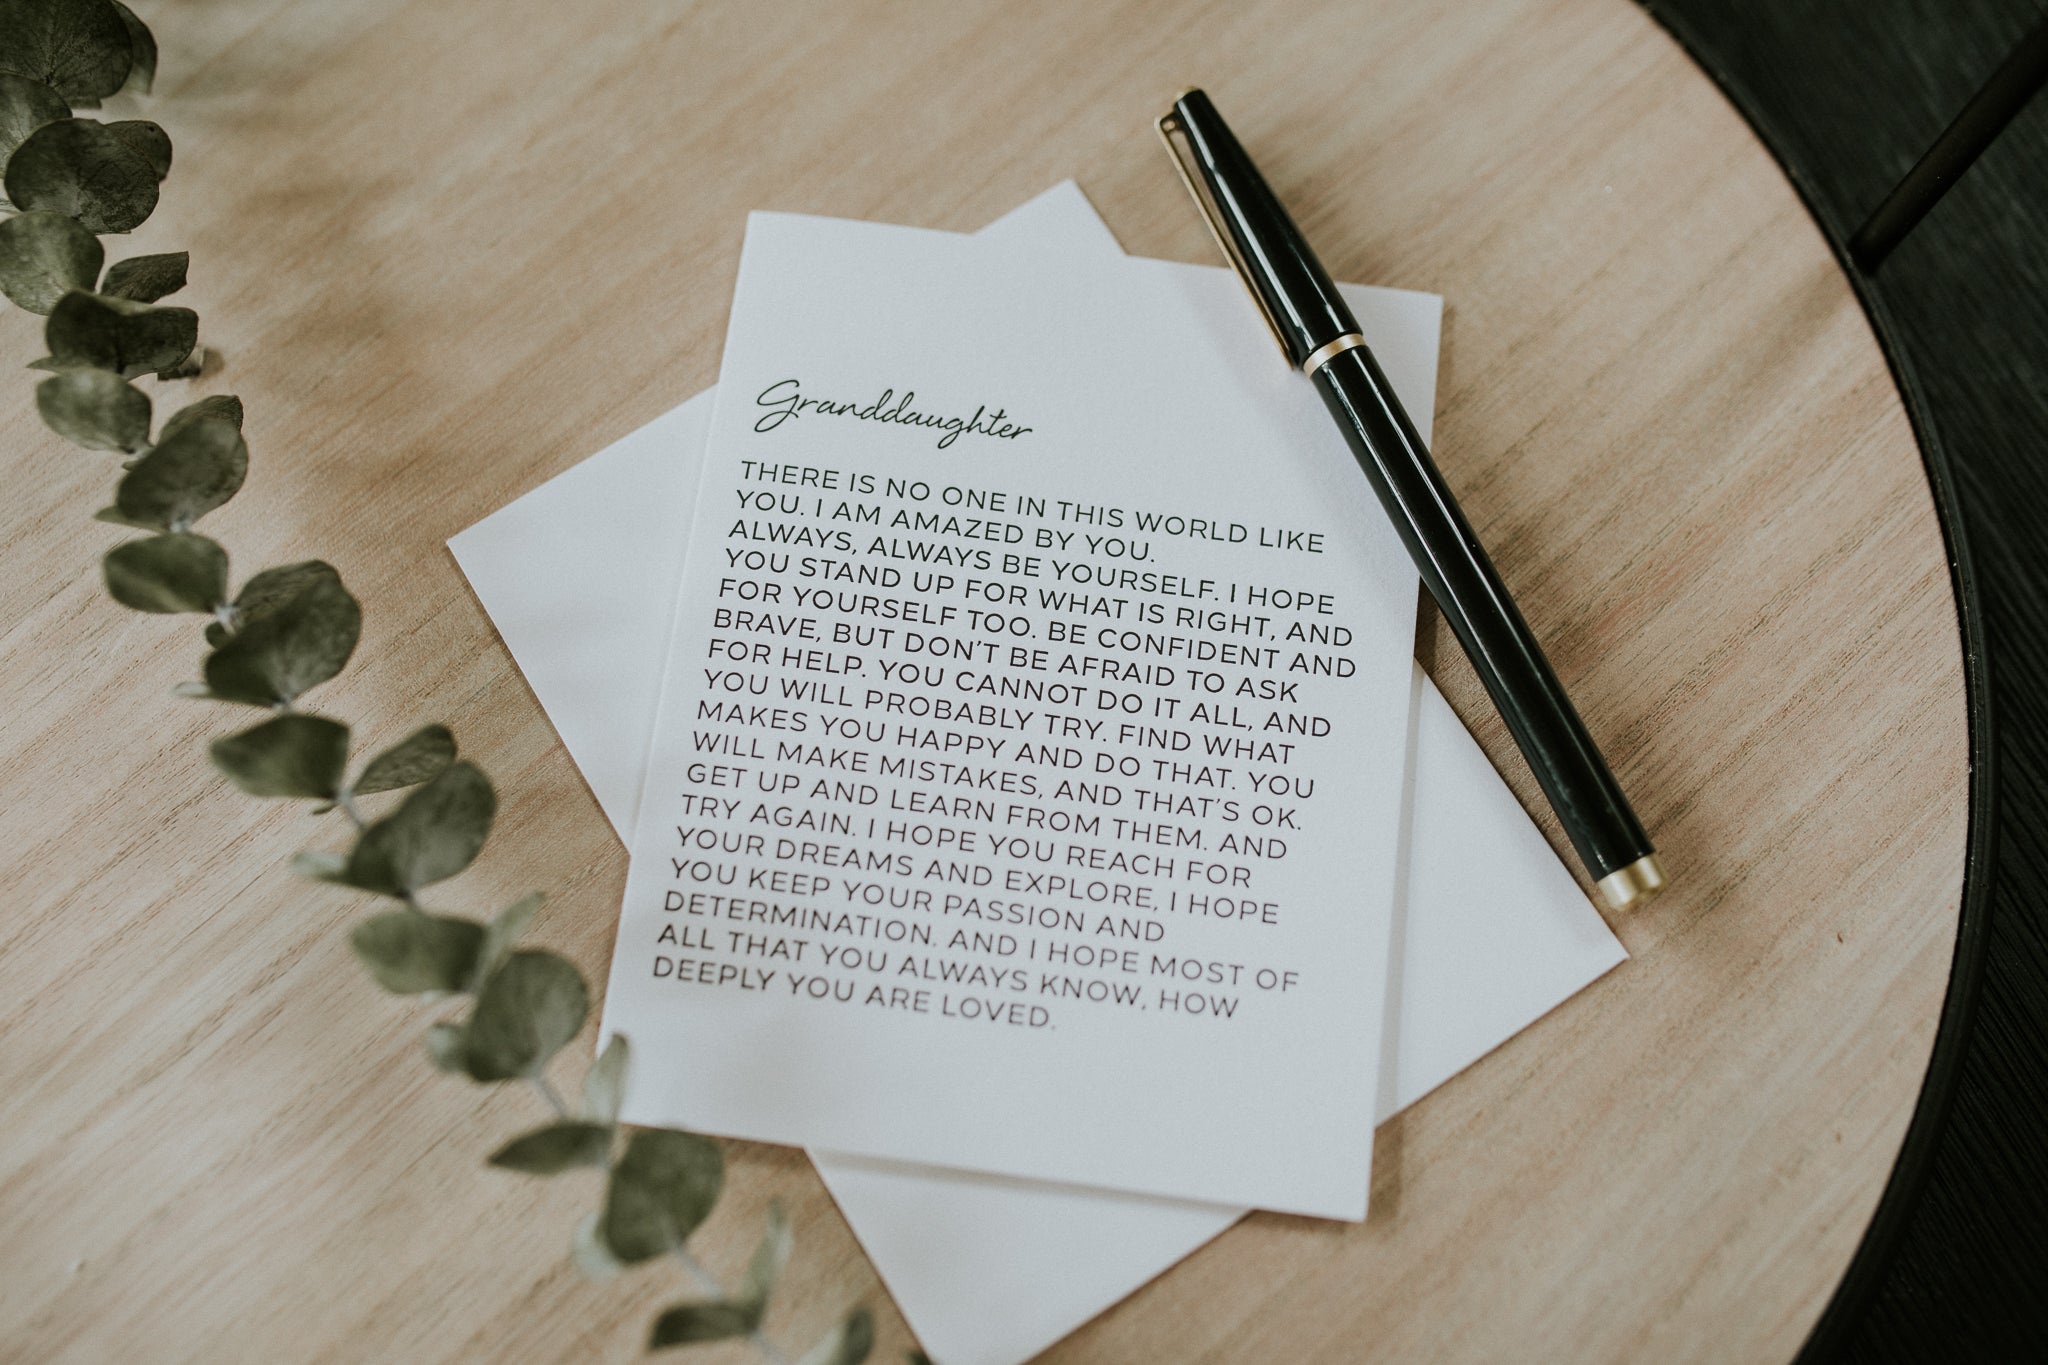 Granddaughter
THERE IS NO ONE IN THIS WORLD LIKE
YOU. I AM AMAZED BY YOU.
ALWAYS, ALWAYS BE YOURSELF. I HOPE
YOU STAND UP FOR WHAT IS RIGHT, AND
FOR YOURSELF TOO. BE CONFIDENT AND
BRAVE, BUT DON'T BE AFRAID TO ASK
FOR HELP. YOU CANNOT DO IT ALL, AND
YOU WILL PROBABLY TRY. FIND WHAT
MAKES YOU HAPPY AND DO THAT. YOU
WILL MAKE MISTAKES, AND THAT'S OK.
GET UP AND LEARN FROM THEM. AND
TRY AGAIN. I HOPE YOU REACH FOR
YOUR DREAMS AND EXPLORE, I HOPE
YOU KEEP YOUR PASSION AND
DETERMINATION. AND I HOPE MOST OF
ALL THAT YOU ALWAYS KNOW, HOW
DEEPLY YOU ARE LOVED.